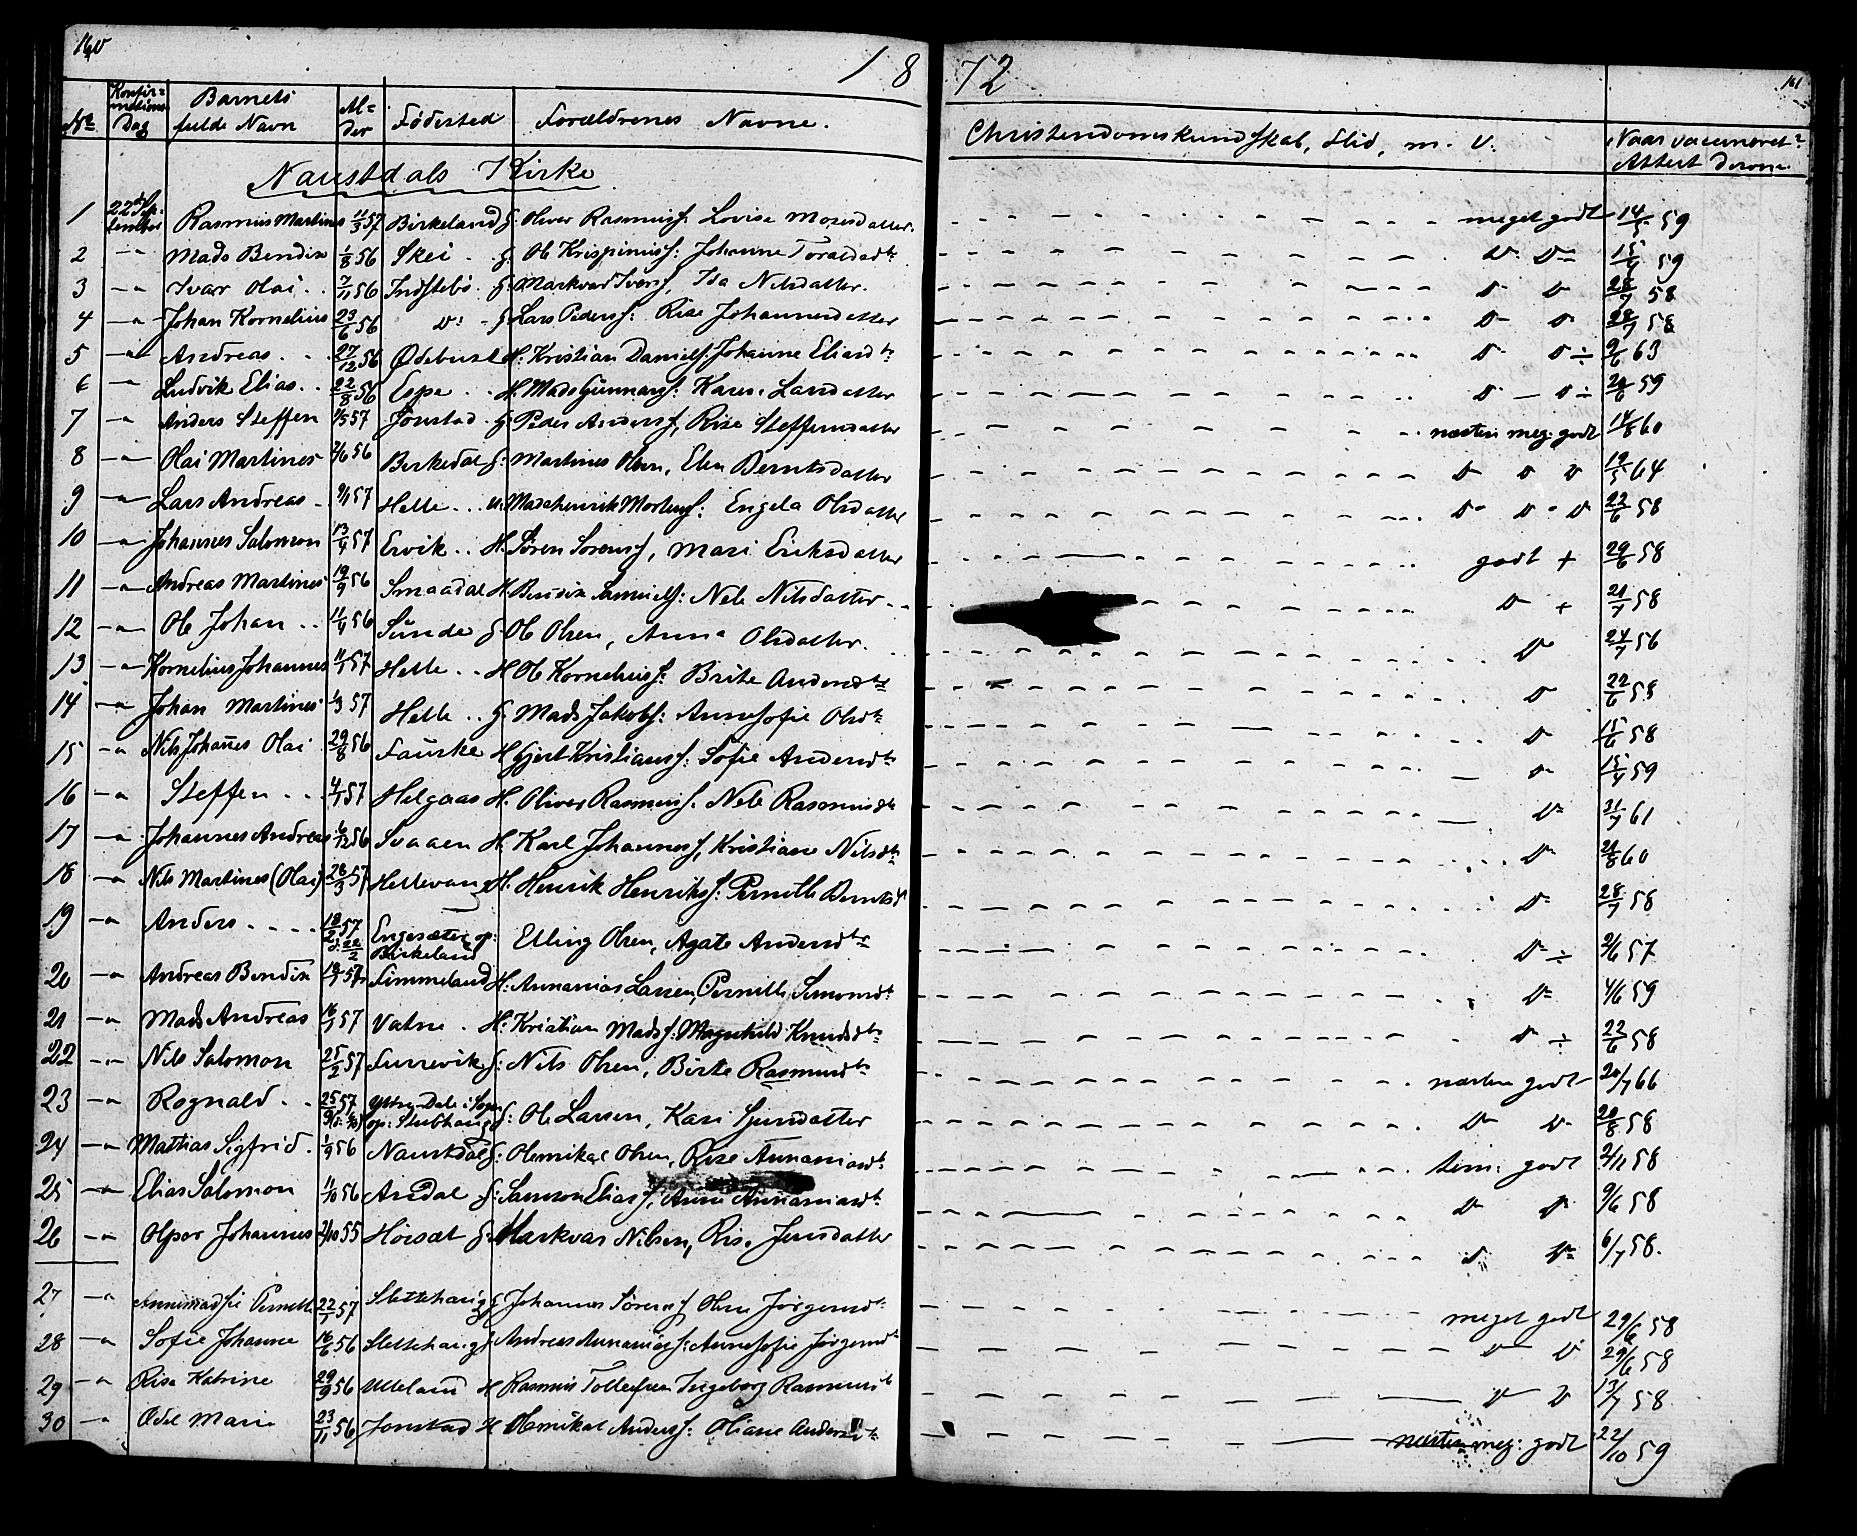 160
18 72
161
No Konfirmations Dag Barnets fulde Navn Alder Fødested Forældrenes Navne. Christendomskundskab, Flid, m. v. Naar vaccineret? Attest derom
Naustdals Kirke
1 22de September Rasmus Martinus 11/3 57 Birkeland g. Oliver Rasmuss. Lovise Mosesdatter. meget godt 14/ 59
2 -"- Mads Bendix 1/8 56 Skei g. Ole Krispinuss: Johanne Toraldsdtr v. v. 15/ 59
3 -"- Ivar Olai 7/11 56 Indstebø g. Markvard Ivers, Ida Nilsdatter. v v 28/7 58
4 -"- Johan Kornelius 23/6 56 v: g. Lars Peders: Rise Johannesdatter v v 28/7 58
5 -"- Andreas 27/12 56 Ødebust H: Kristian Daniels: Johanne Eliasdtr v v ÷ 9/6 63
6 -"- Ludvik Elias 22/8 56 Espe H. Mads Gunnars: Karen Larsdatter v v ÷ 59
7 -"- Anders Steffen 1/5 57 Jonstad g Peder Anders, Rise Steffensdatter næsten meg: godt 14/8 60
8 -"- Olai Martines 2/6 56 Birkedal g: Martines Olsen, Elen Berntsdatter v v v 19/5 64
9 -"- Lars Andreas 9/1 57 Helle Mads Henrik Mortens: Engela Olsdatter v v v 22/6 58
10 -"- Johannes Salomon 13/4 57 Ervik H. Søren Sørens, Mari Eriksdatter godt + 29/6 58
11 -"- Andreas Martines 19/9 56 Smaadal H. Bendix Samuels: Nele Nilsdatter v + 21/7 58
12 -"- Ole Johan 11/4 56 Sunde g Ole Olsen, Anna Olsdatter. v 24/7 56
13 -"- Kornelius Johannes 11/1 57 Helle H Ole Kornelius: Brite Andersdtr v 22/6 58
14 -"- Johan Martines 1/3 57 Helle g. Mads Jakobs: Anne Sofie Olsdtr v 15/6 58
15 -"- Nils Johanes Olai 29/8 56 Fauske H Gjert Kristians: Sofie Andersdtr v 15/4 59
16 -"- Steffen 4/1 57 Helgaas H. Oliver Rasmus. Nele Rasmusdtr v 31/7 61
17 -"- Johannes Andreas 6/12 56 Svaaen H. Karl Johannes, Kristiane Nilsdtr v 21/8 60
18 -"- Nils Martines (Olai) 28/3 57 Hellevang H. Henrik Henriks: Pernille Berntsd v 28/7 58
19 -"- Anders 18/2 57 Engesæter op: Birkeland Elling Olsen, Agate Andersdtr v ÷ 2/6 57
20 -"- Andreas Bendix 18/1 57 Fimmeland H: Annanias Larsen, Pernille Simonsdtr v 4/6 59
21 -"- Mads Andreas 16/1 57 Valne H: Kristian Mads: Magnhild Knudsdtr v ÷ 22/6 58
22 -"- Nils Salomon 25/2 57 Furrevik g: Nils Olsen, Birte Rasmusdtr næsten godt 20/7 66
23 -"- Rognald 25 57 Yttre Dale i op: Stubhaug g: Ole Larsen, Kari Gjersdatter v v 20/8 58
24 -"- Mattias Sigfrid 1/9 56 Naustdal g: Ole Mikal Olsen, Rise Annaniasdtr tem: godt 2/12 58
25 -"- Elias Salomon 11/10 56 Andal g: Samson Elias, Anne Annaniasdtr v v 9/6 58
26 -"- Olper Johannes 2/10 55 Høisæt g Markvar Nilsen, Rise Jensdatter v v 6/7 58.
27 -"- Annemadsie Pernille 22/1 57 Slettehaug g Johannes Sørens, Oline Jørgensdtr meget godt 29/6 58
28 -"- Sofie Johanne 16/6 56 Slettehaug g Andreas Annanias: Anne Sofie Jørgensdtr v v 29/6 58
29 -"- Risa Katrine 29/9 56 Ulleland H Rasmus Tollefsen Ingeborg Rasmusdtr v v 13/7 58
30 -"- Odel Marie 23/11 56 Jonstad H Ole Mikal Anders: Oliane Andersdtr næsten meg: godt 22/10 59